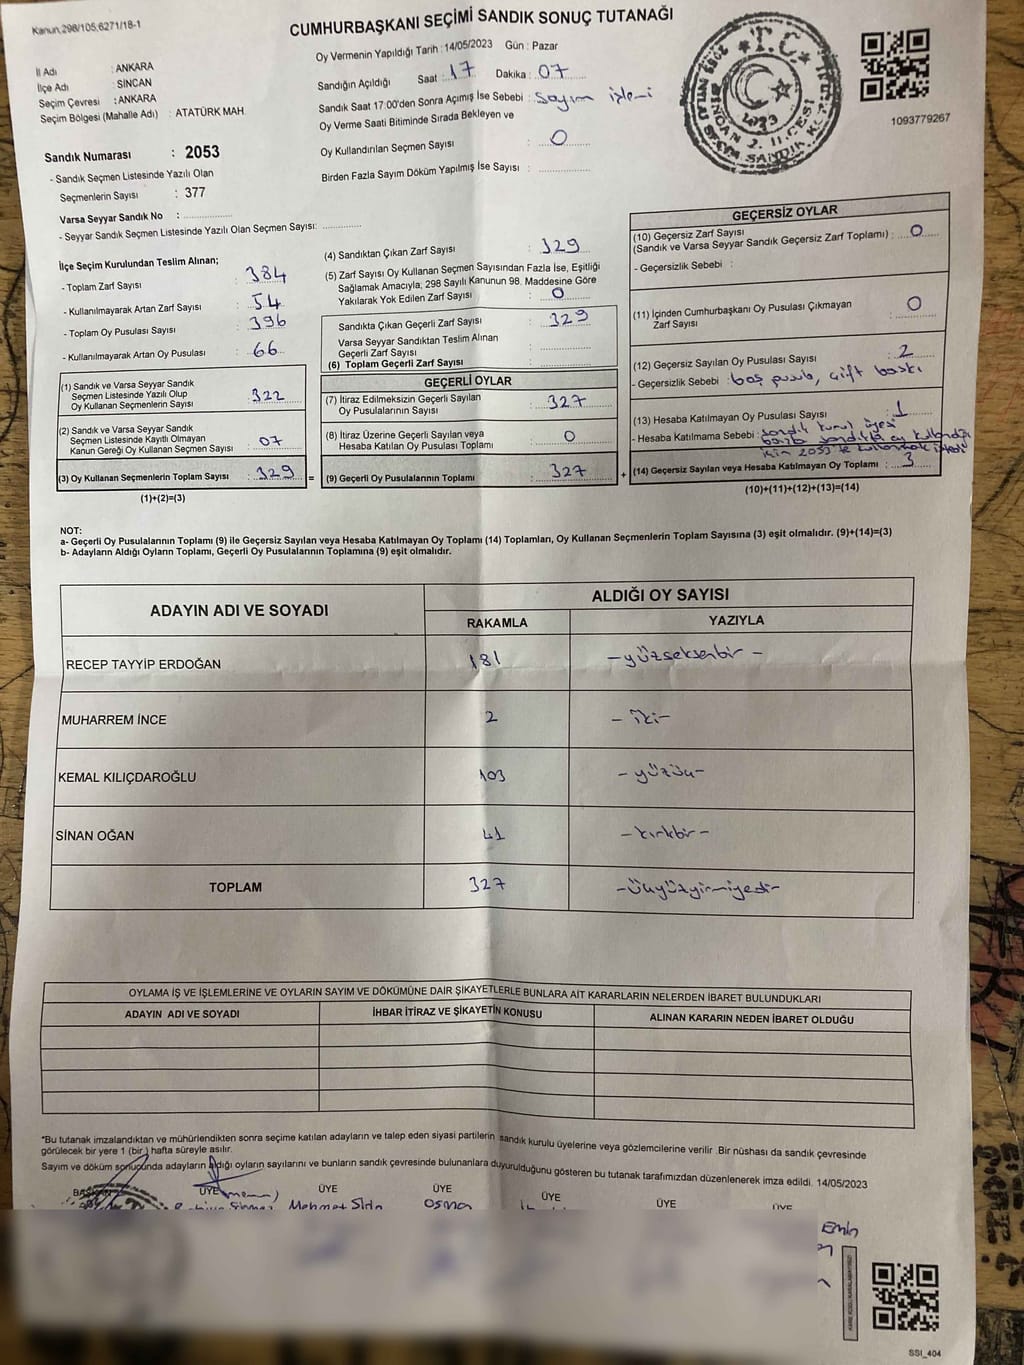 Kanun,298/105,6271/18-1
CUMHURBAŞKANI SEÇİMİ SANDIK SONUÇ TUTANAĞI
Oy Vermenin Yapıldığı Tarih : 14/05/2023 Gün : Pazar
İl Adı : ANKARA
İlçe Adı : SİNCAN
Seçim Çevresi : ANKARA
Seçim Bölgesi (Mahalle Adı) : ATATÜRK MAH
Sandığın Açıldığı Saat : 17 Dakika : 07
Sandık Saat 17:00'den Sonra Açımış İse Sebebi : Sayım işlemi
Oy Verme Saati Bitiminde Sırada Bekleyen ve
Oy Kullandırılan Seçmen Sayısı : 0
Birden Fazla Sayım Döküm Yapılmış İse Sayısı :
T.C.
SİNCAN 2. İLÇESİ
1093779267
Sandık Numarası : 2053
- Sandık Seçmen Listesinde Yazılı Olan
Seçmenlerin Sayısı : 377
Varsa Seyyar Sandık No :
- Seyyar Sandık Seçmen Listesinde Yazılı Olan Seçmen Sayısı:
İlçe Seçim Kurulundan Teslim Alınan;
- Toplam Zarf Sayısı : 384
- Kullanılmayarak Artan Zarf Sayısı : 54
- Toplam Oy Pusulası Sayısı : 396
- Kullanılmayarak Artan Oy Pusulası : 66
(1) Sandık ve Varsa Seyyar Sandık
Seçmen Listesinde Yazılı Olup
Oy Kullanan Seçmenlerin Sayısı : 322
(2) Sandık ve Varsa Seyyar Sandık
Seçmen Listesinde Kayıtlı Olmayan
Kanun Gereği Oy Kullanan Seçmen Sayısı : 07
(3) Oy Kullanan Seçmenlerin Toplam Sayısı : 329 =
(1)+(2)=(3)
(4) Sandıktan Çıkan Zarf Sayısı : 329
(5) Zarf Sayısı Oy Kullanan Seçmen Sayısından Fazla İse, Eşitliği
Sağlamak Amacıyla, 298 Sayılı Kanunun 98. Maddesine Göre
Yakılarak Yok Edilen Zarf Sayısı : 0
Sandıkta Çıkan Geçerli Zarf Sayısı : 329
Varsa Seyyar Sandıktan Teslim Alınan
Geçerli Zarf Sayısı :
(6) Toplam Geçerli Zarf Sayısı :
GEÇERLİ OYLAR
(7) İtiraz Edilmeksizin Geçerli Sayılan
Oy Pusulalarının Sayısı : 327
(8) İtiraz Üzerine Geçerli Sayılan veya
Hesaba Katılan Oy Pusulası Toplamı : 0
(9) Geçerli Oy Pusulalarının Toplamı : 327 +
GEÇERSİZ OYLAR
(10) Geçersiz Zarf Sayısı
(Sandık ve Varsa Seyyar Sandık Geçersiz Zarf Toplamı) : 0
- Geçersizlik Sebebi :
(11) İçinden Cumhurbaşkanı Oy Pusulası Çıkmayan
Zarf Sayısı : 0
(12) Geçersiz Sayılan Oy Pusulası Sayısı : 2
- Geçersizlik Sebebi : boş pusula, çift baskı
(13) Hesaba Katılmayan Oy Pusulası Sayısı : 1
- Hesaba Katılmama Sebebi : sandık kurul üyesi
başka sandıkta oy kullandığı
için 2053'te
(14) Geçersiz Sayılan veya Hesaba Katılmayan Oy Toplamı : 3
(10)+(11)+(12)+(13)=(14)
NOT:
a- Geçerli Oy Pusulalarının Toplamı (9) ile Geçersiz Sayılan veya Hesaba Katılmayan Oy Toplamı (14) Toplamları, Oy Kullanan Seçmenlerin Toplam Sayısına (3) eşit olmalıdır. (9)+(14)=(3)
b- Adayların Aldığı Oyların Toplamı, Geçerli Oy Pusulalarının Toplamına (9) eşit olmalıdır.
ADAYIN ADI VE SOYADI ALDIĞI OY SAYISI
RAKAMLA YAZIYLA
RECEP TAYYİP ERDOĞAN 181 -yüzseksenbir-
MUHARREM İNCE 2 -iki-
KEMAL KILIÇDAROĞLU 103 -yüzüç-
SİNAN OĞAN 41 -kırkbir-
TOPLAM 327 -üçyüzyirmiyedi-
OYLAMA İŞ VE İŞLEMLERİNE VE OYLARIN SAYIM VE DÖKÜMÜNE DAİR ŞİKAYETLERLE BUNLARA AİT KARARLARIN NELERDEN İBARET BULUNDUKLARI
ADAYIN ADI VE SOYADI İHBAR İTİRAZ VE ŞİKAYETİN KONUSU ALINAN KARARIN NEDEN İBARET OLDUĞU
*Bu tutanak imzalandıktan ve mühürlendikten sonra seçime katılan adayların ve talep eden siyasi partilerin sandık kurulu üyelerine veya gözlemcilerine verilir .Bir nüshası da sandık çevresinde
görülecek bir yere 1 (bir ) hafta süreyle asılır.
Sayım ve döküm sonucunda adayların aldığı oyların sayılarını ve bunların sandık çevresinde bulunanlara duyurulduğunu gösteren bu tutanak tarafımızdan düzenlenerek imza edildi. 14/05/2023
BAŞKAN ÜYE ÜYE ÜYE ÜYE ÜYE ÜYE
Mehmet Osma
Emin
SSI_404